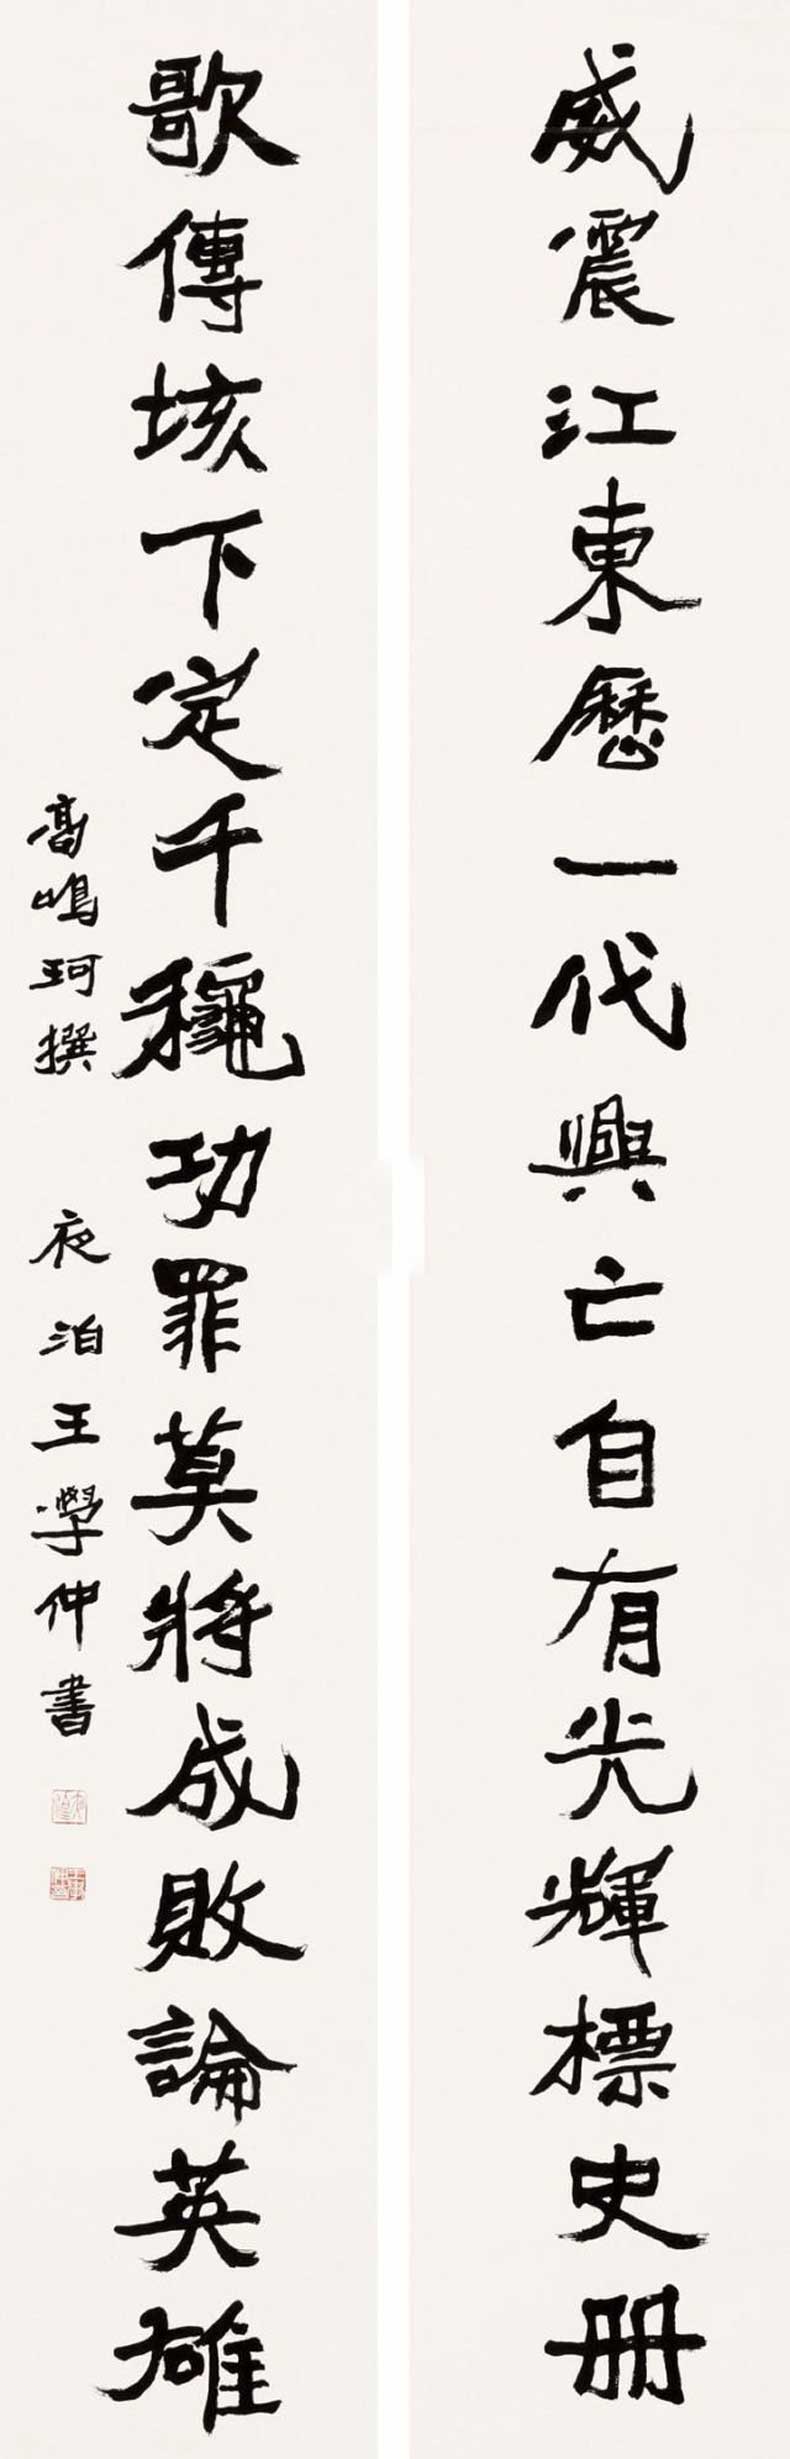 威震江東歷一代興亡自有光輝標史册
歌傳垓下定千龝功罪莫將成敗論英雄
高鳴珂撰 夜泊王學仲書